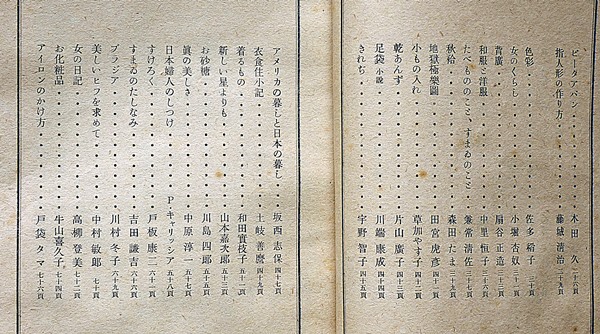 ピータアパン 木田 久 二十六頁
指人形の作り方 藤城 清治 二十九頁
色彩 佐多 稲子 三十頁
女のくらし 小堀 杏奴 三十一頁
背廣 扇谷 正造
和服と洋服 中里 恒子
たべもののこと、すまゐのこと 兼常 清佐 三十七頁
秋袷 森田 たま 三十九頁
地獄極樂圖 田宮 虎彦 四十一頁
小もの入れ 草加 やす子 四十二頁
乾あんず 片山 廣子 四十三頁
足袋 小説 川端 康成 四十四頁
きれぢ 宇野 智子 四十五頁
アメリカの暮しと日本の暮し 坂西 志保 四十七頁
衣食住小記 土岐 善麿 四十九頁
着るもの 和田 實枝子 五十一頁
新しい星よりも 山本 嘉次郎 五十三頁
お砂糖 川島 四郎 五十五頁
眞の美しさ 中原 淳一 五十七頁
日本婦人のしつけ P・キャリッシア 五十八頁
すけろく 戸板 康二 六十頁
すまゐのたしなみ 吉田 謙吉 六十六頁
ブラジア 川村 冬子 六十九頁
美しいヒフを求めて 中村 敏郎 七十頁
女の日記 高柳 登美 七十二頁
お化粧品 牛山 喜久子 七十四頁
アイロンのかけ方 戸袋 タマ 七十六頁